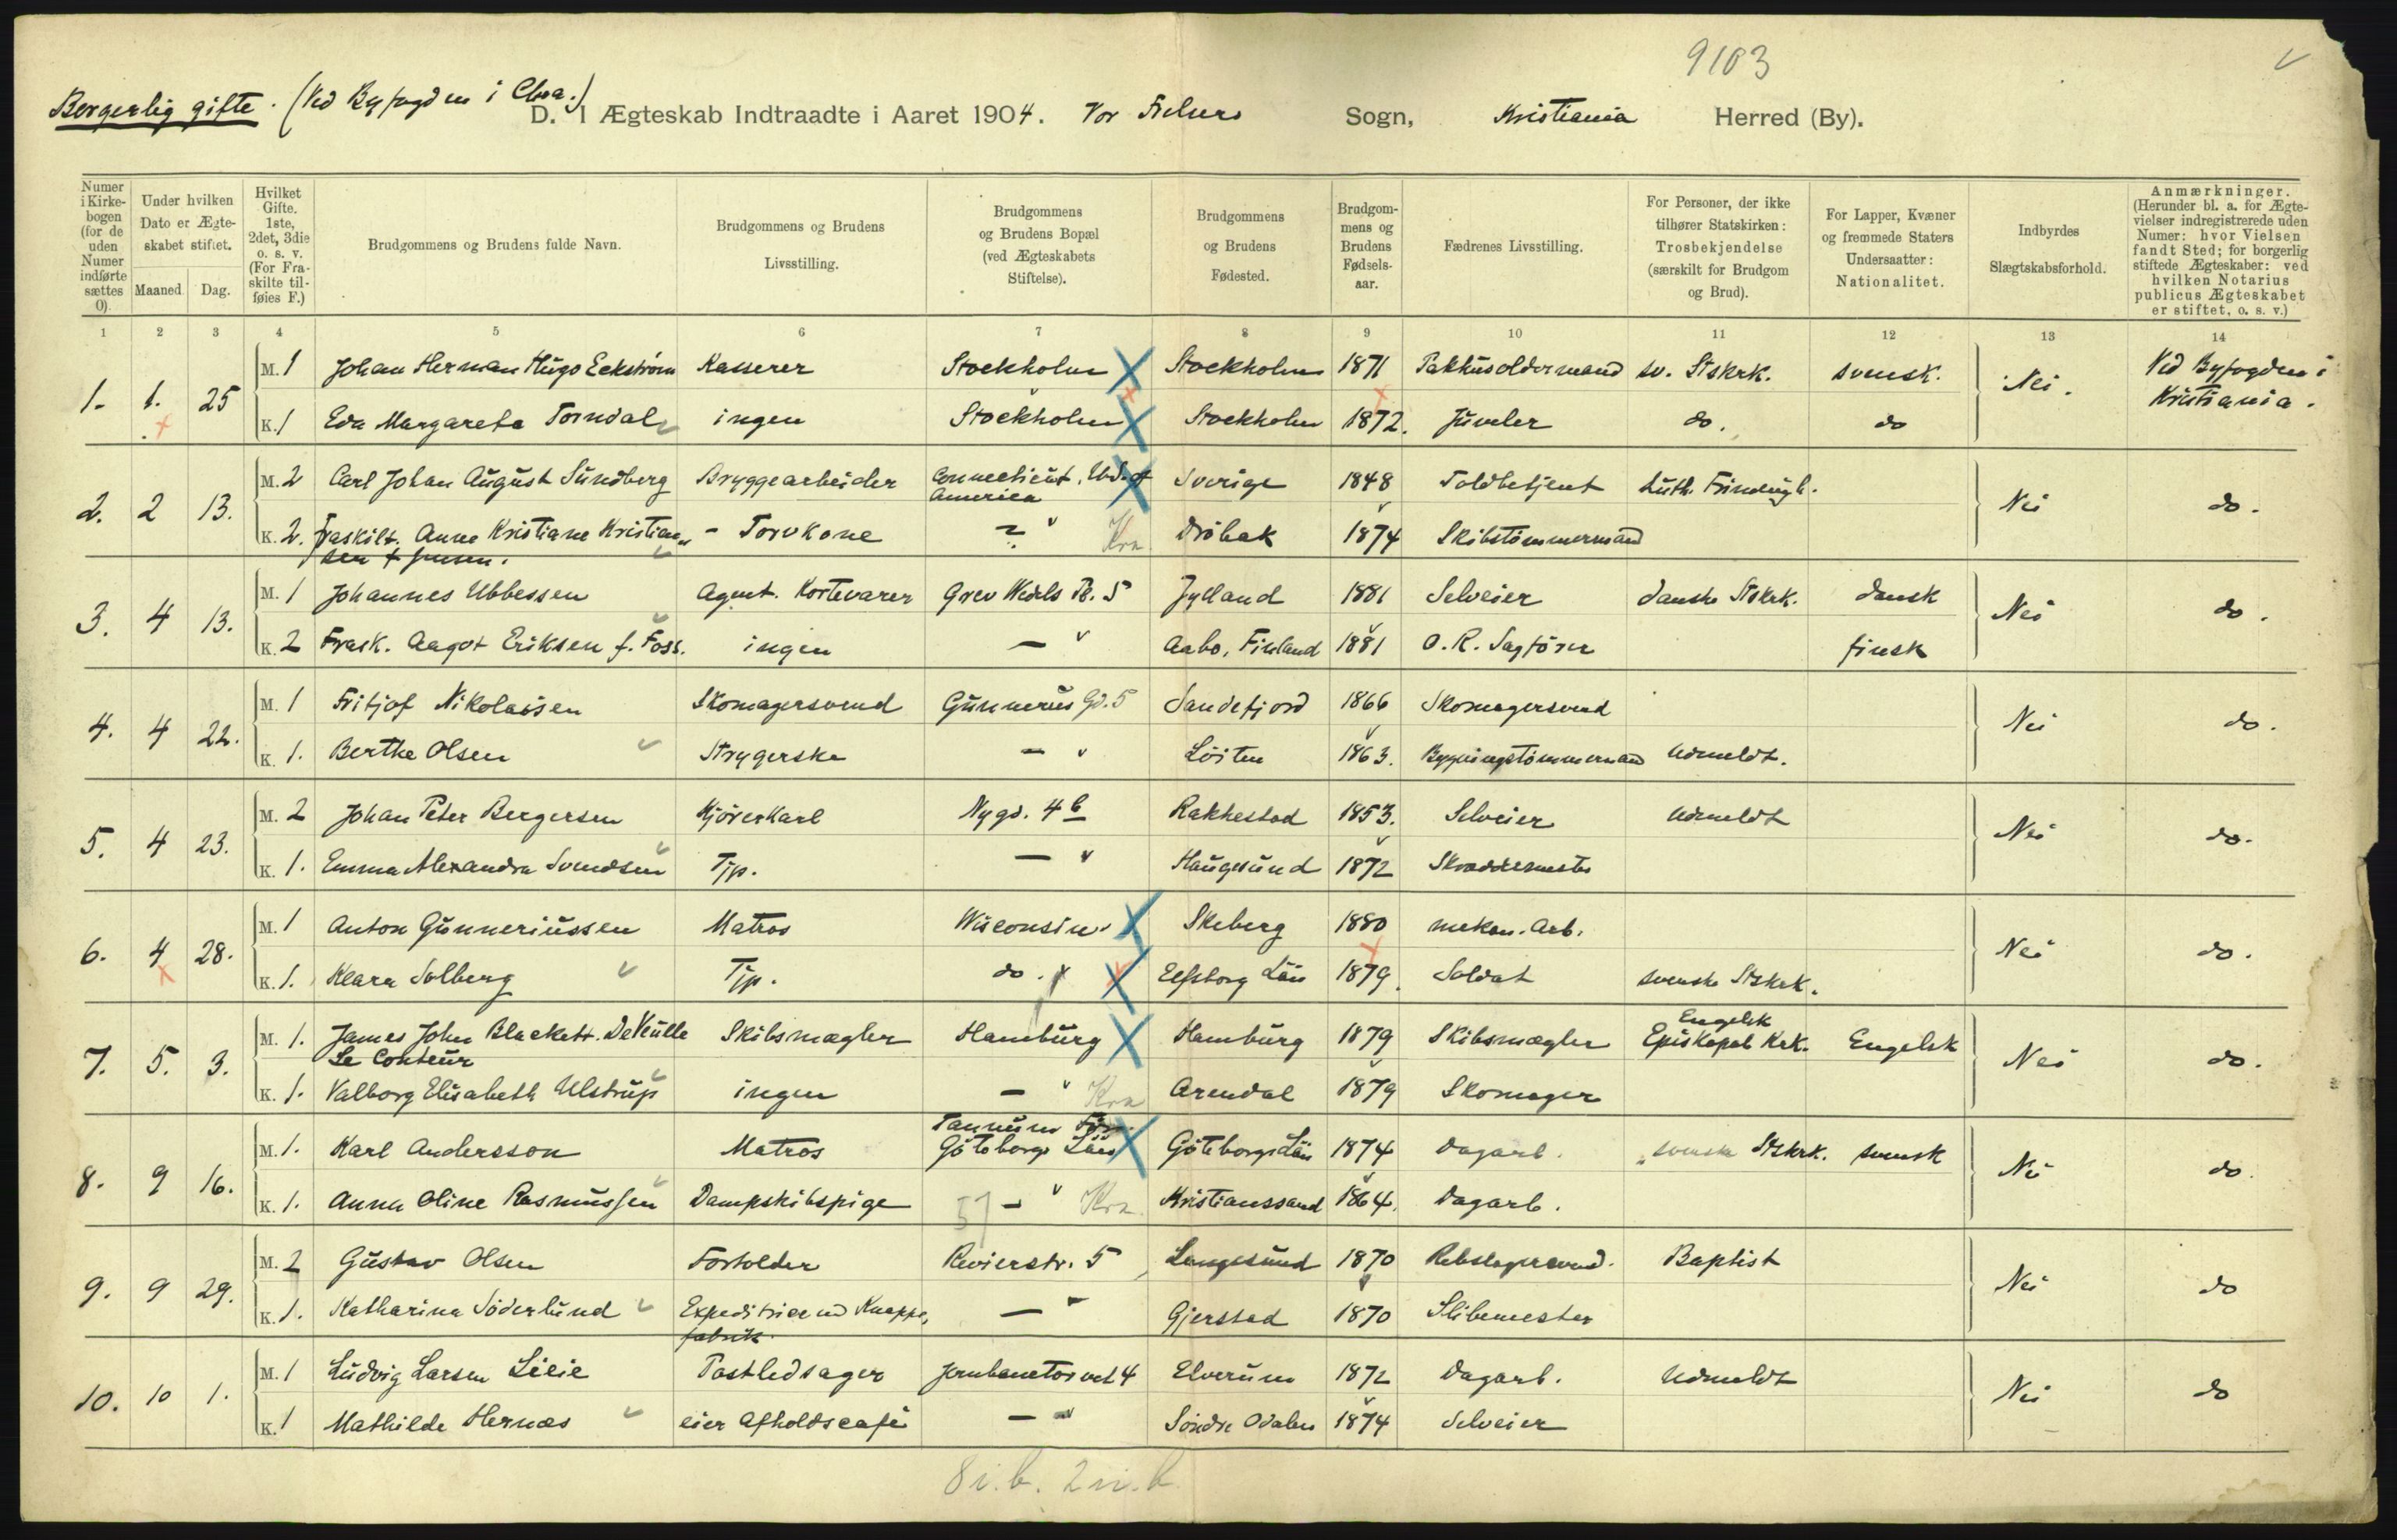 9103
Borgerlig gifte. (Ved Byfogden i Chra.)
D. I Ægteskab Indtraadte i Aaret 1904. Vor Frelsers Sogn, Kristiania Herred (By).
Numer i Kirkebogen (for de uden Numer indførte sættes 0).
Under hvilken Dato er Ægteskabet stiftet.
Maaned Dag.
Hvilket Gifte. 1ste, 2det, 3die o. s. v. (For Fraskilte tilføies F.)
Brudgommens og Brudens fulde Navn.
Brudgommens og Brudens Livsstilling.
Brudgommens og Brudens Bopæl (ved Ægteskabets Stiftelse).
Brudgommens og Brudens Fødested.
Brudgommens og Brudens Fødselsaar.
Fædrenes Livsstilling.
For Personer, der ikke tilhører Statskirken: Trosbekjendelse (særskilt for Brudgom og Brud).
For Lapper, Kvæner og fremmede Staters Undersaatter: Nationalitet.
Indbyrdes Slægtskabsforhold.
Anmærkninger. (Herunder bl. a. for Ægtevielser indregistrerede uden Numer: hvor Vielsen fandt Sted; for borgerlig stiftede Ægteskaber: ved hvilken Notarius publicus Ægteskabet er stiftet, o. s. v.)
1 2 3 4 5 6 7 8 9 10 11 12 13 14
1. 1. 25 M. 1 Johan Herman Hugo Eckström Kasserer Stockholm Stockholm 1871 Pakhusoldermand sv. Stskrk. svensk. Nei. Ved Byfogden i Kristiania.
K. 1 Eda Margareta Torndal ingen Stockholm Stockholm 1872. Juveler do. do
2. 2 13. M. 2 Carl Johan August Sundberg Bryggearbeider Connecticut, U.S. of America Sverige 1848 Toldbetjent Luth. Frimenigh. Nei do.
K. 2. Fraskilt. Anne Kristiane Kristiansen f. Jensen. - Torvkone — " Kra Drøbak 1874 Skibstømmermand
3. 4 13. M. 1 Johannes Ubbessen Agent. Kortevarer Grev Wedels Pl. 5 Jylland 1881 Selveier danske Stskrk. dansk Nei do.
K. 2 Frask. Aagot Eriksen f. Foss. ingen — " Aabo, Finland 1881 O. R. Sagfører finsk
4. 4 22. M. 1 Fritjof Nikolaisen Skomagersvend Gunnerus Gd. 5 Sandefjord 1866 Skomagersvend Nei do.
K. 1. Berthe Olsen Strygerske — " Löiten 1863. Bygningstømmermand Udmeldt.
5. 4 23. M. 2 Johan Peter Bergersen Kjørerkarl Nygd. 4 b Rakkestad 1853. Selveier Udmeldt Nei do.
K. 1. Emma Alexandra Svendsen Tjp. — " Haugesund 1872 Skræddermester
6. 4 28. M. 1 Anton Gunneriussen Matros Wisconsin. Skeberg 1880 mekan. Arb. Nei do.
K. 1. Klara Solberg Tjp. do. Elfsborg Län 1879. Soldat svenske Stskrk.
7. 5. 3. M. 1. James John Blackett. De Veulle Le Conteur Skibsmægler Hamburg Hamburg 1879 Skibsmægler Engelsk Episkopal Krk. Engelsk Nei do.
K. 1. Valborg Elisabeth Ulstrup ingen — " Kra Arendal 1879 Skomager
8. 9 16. M. 1. Karl Andersson Matros Tannum Göteborgs Län Göteborgs Län 1874 Dagarb. svenske Stskrk. svensk Nei do.
K. 1. Anna Oline Rasmussen Dampskibspige — " Kra. Kristianssand 1864. Dagarb.
9. 9 29. M. 2 Gustav Olsen Forholder Revierstr. 5 Langesund 1870 Rebslagersvend. Baptist Nei do
K. 1. Katharina Söderlund Expeditrice ved Knappefabrik — " Gjerstad 1870 Slibemester
10. 10 1. M. 1 Ludvig Larsen Lilie Postledsager Jernbanetorvet 4 Elverum 1872 Dagarb. Udmeldt Nei do
K. 1 Mathilde Hernæs eier Afholdscafé — " Søndre Odalen 1874 Selveier
8 i. b. 2 u. b.